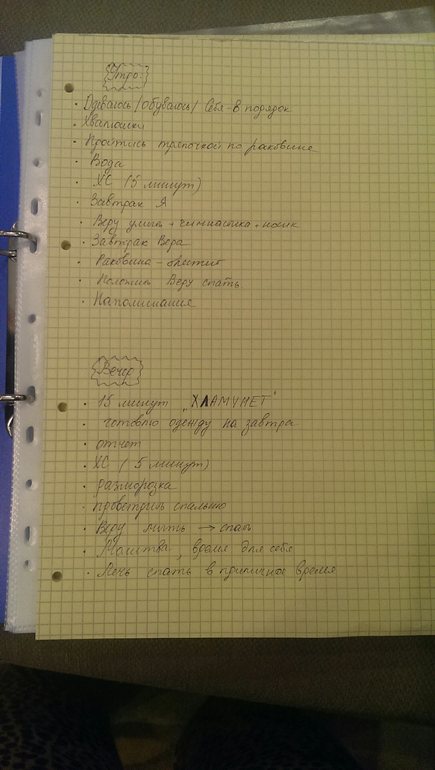 Утро:
· Одеваюсь/обуваюсь/себя-в порядок
· Хвалюшки
· Пройтись тряпочкой по раковине
· Вода
· ХС (5 минут)
· Завтрак Я
· Веру умыть + гимнастика + носик
· Завтрак Вера
· Раковина - блестит
· Положить Веру спать
· Напоминания
Вечер
· 15 минут „ХЛАМУНЕТ"
· готовлю одежду на завтра
· отчет
· ХС (5 минут)
· разморозка
· проветрить спальню
· Веру мыть → спать
· Молитва, время для себя
· Лечь спать в приличное время